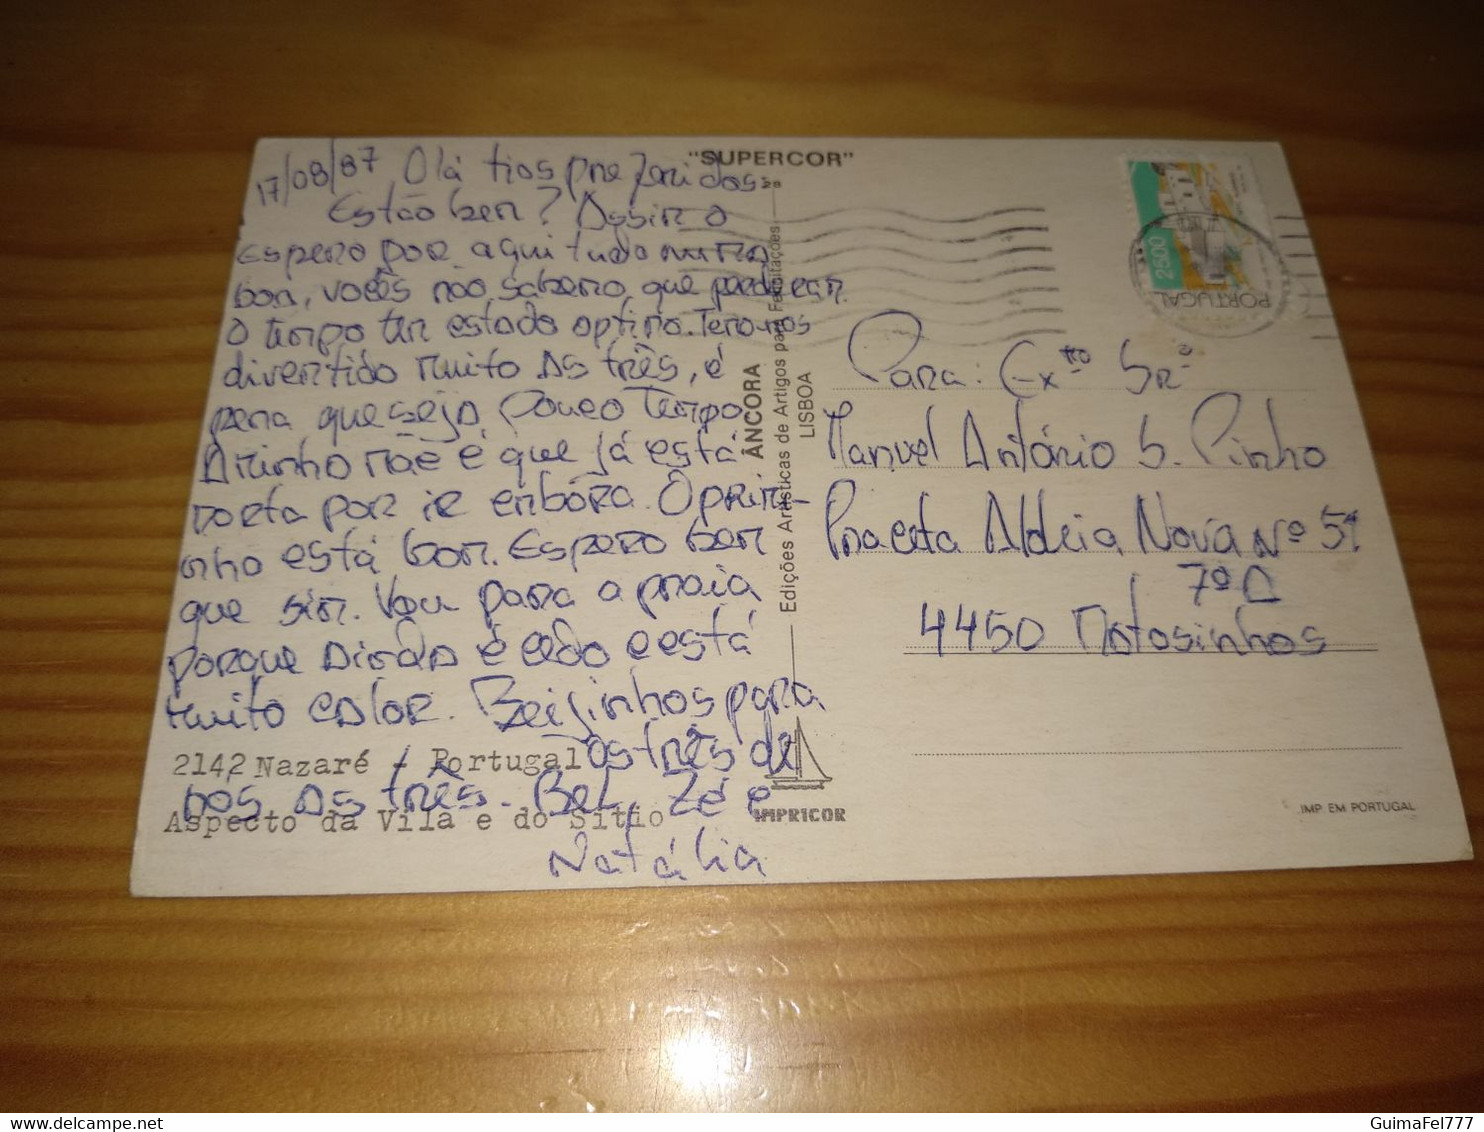 17/08/87 Olá tios preferidos
Estão ben? Assim o
espero por aqui tudo numa
boa, vocês não sabem o que perderam.
O tempo tem estado optimo. Temo-nos
divertido muito as três, é
pena que seja pouco tempo
A minho mãe é que já está
morta por ir embóra. O prim-
inho está bom. Espero bem
que sim. Vou para a praia
porque ainda é cedo e está
muito calor. Beijinhos para
os três de
nós as três. Bel, Zé e
Natália
2142 Nazaré - Portugal
Aspecto da Vila e do Sítio
"SUPERCOR"
28
Edições Artísticas de Artigos para Felicitações
ÂNCORA
LISBOA
IMPRICOR
2500
PORTUGAL
Para: Exmo Sr.º
Manuel António S. Pinho
Praceta Aldeia Nova Nº 51
7º D
4450 Matosinhos
IMP EM PORTUGAL
GuimaFel777